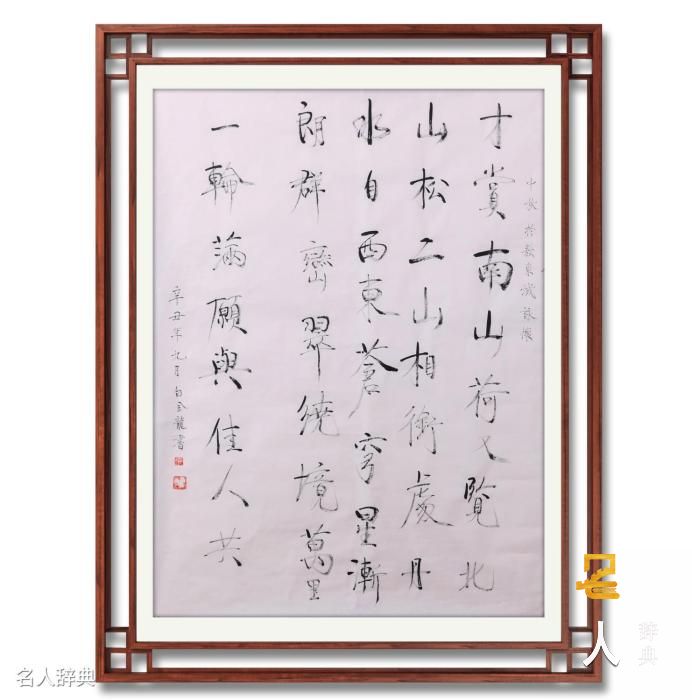 中秋於敖東城詠懷
才賞南山荷又覽北
山松二山相銜處丹
水自西東蒼穹星漸
朗群巒翠繞境萬里
一輪滿願與佳人共
辛丑年九月白金龍書
名人辞典
名人辞典